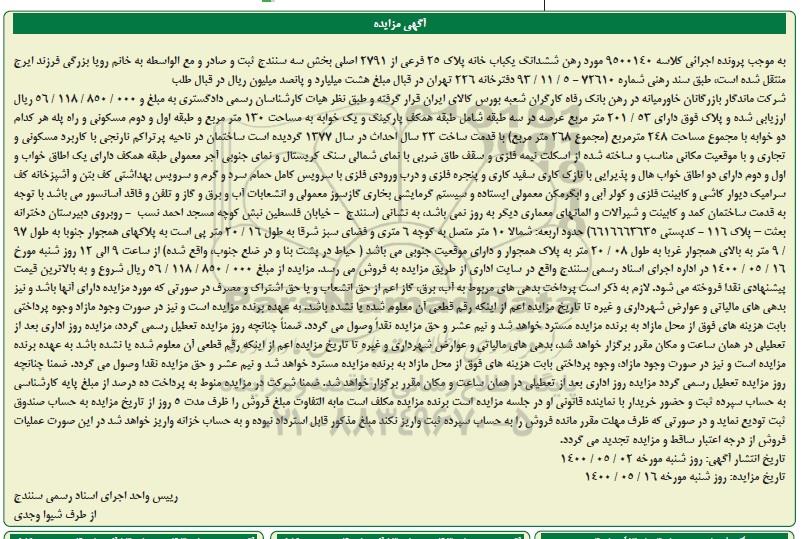 آگهی مزایده
به موجب پرونده اجرائی کلاسه ۹۵۰۰۱۴۰ مورد رهن ششدانگ یکباب خانه پلاک ۲۵ فرعی از ۲۷۹۱ اصلی بخش سه سنندج ثبت و صادر و مع الواسطه به خانم رویا بزرگی فرزند ایرج
منتقل شده است، طبق سند رهنی شماره ۷۲۶۱۰ - ۵ / ۱۱ / ۹۳ دفترخانه ۲۲۶ تهران در قبال مبلغ هشت میلیارد و پانصد میلیون ریال در قبال طلب
شرکت ماندگار بازرگانان خاورمیانه در رهن بانک رفاه کارگران شعبه بورس کالای ایران قرار گرفته و طبق نظر هیات کارشناسان رسمی دادگستری به مبلغ و ۰۰۰ / ۸۵۰ / ۱۱۸ / ۵۶ ریال
ارزیابی شده و پلاک فوق دارای ۵۳ / ۲۰۱ متر مربع عرصه در سه طبقه شامل طبقه همکف پارکینگ و یک خوابه به مساحت ۱۲۰ متر مربع و طبقه اول و دوم مسکونی و راه پله هر کدام
دو خوابه با مجموع مساحت ۲۴۸ مترمربع (مجموع ۳۶۸ متر مربع) با قدمت ساخت ۲۳ سال احداث در سال ۱۳۷۷ گردیده است ساختمان در ناحیه پرتراکم نارنجی با کاربرد مسکونی و
تجاری و با موقعیت مکانی مناسب و ساخته شده از اسکلت نیمه فلزی و سقف طاق ضربی با نمای شمالی سنگ کریستال و نمای جنوبی آجر معمولی طبقه همکف دارای یک اطاق خواب و
اول و دوم دارای دو اطاق خواب هال و پذیرایی با نازک کاری سفید کاری و پنجره فلزی و درب ورودی فلزی با سرویس کامل حمام سرد و گرم و سرویس بهداشتی کف بتن و آشپزخانه کف
سرامیک دیوار کاشی و کابینت فلزی و کولر آبی و آبگرمکن معمولی ایستاده و سیستم گرمایشی بخاری گازسوز معمولی و انشعابات آب و برق و گاز و تلفن و فاقد آسانسور می باشد با توجه
به قدمت ساختمان کمد و کابینت و شیرآلات و المانهای معماری دیگر به روز نمی باشد، به نشانی (سنندج - خیابان فلسطین نبش کوچه مسجد احمد نسب - روبروی دبیرستان دخترانه
بعثت – پلاک ۱۱۶ - کدپستی ۶۶۱۶۶۶۳۶۳۵) حدود اربعه: شمالا ۱۰ متر متصل به کوچه ۶ متری و فضای سبز شرقا به طول ۱۶ / ۲۰ متر پی است به پلاکهای همجوار جنوبا به طول ۹۷
/ ۹ متر به بالای همجوار غربا به طول ۰۸ / ۲۰ متر به پلاک همجوار و دارای موقعیت جنوبی می باشد ( حیاط در پشت بنا و در ضلع جنوب، واقع شده) از ساعت ۹ الی ۱۲ روز شنبه مورخ
۱۶ / ۰۵ / ۱۴۰۰ در اداره اجرای اسناد رسمی سنندج واقع در سایت اداری از طریق مزایده به فروش می رسد. مزایده از مبلغ ۰۰۰ / ۸۵۰ / ۱۱۸ / ۵۶ ریال شروع و به بالاترین قیمت
پیشنهادی نقدا فروخته می شود. لازم به ذکر است پرداخت بدهی های مربوط به آب، برق، گاز اعم از حق انشعاب و یا حق اشتراک و مصرف در صورتی که مورد مزایده دارای آنها باشد و نیز
بدهی های مالیاتی و عوارض شهرداری و غیره تا تاریخ مزایده اعم از اینکه رقم قطعی آن معلوم شده یا نشده باشد. به عهده برنده مزایده است و نیز در صورت وجود مازاد وجوه پرداختی
بابت هزینه های فوق از محل مازاد به برنده مزایده مسترد خواهد شد و نیم عشر و حق مزایده نقداً وصول می گردد. ضمناً چنانچه روز مزایده تعطیل رسمی گردد، مزایده روز اداری بعد از
تعطیلی در همان ساعت و مکان مقرر برگزار خواهد شد، بدهی های مالیاتی و عوارض شهرداری و غیره تا تاریخ مزایده اعم از اینکه رقم قطعی آن معلوم شده یا نشده باشد به عهده برنده
مزایده است و نیز در صورت وجود مازاد، وجوه پرداختی بابت هزینه های فوق از محل مازاد به برنده مزایده مسترد خواهد شد و نیم عشر و حق مزایده نقدا وصول می گردد. ضمنا چنانچه
روز مزایده تعطیل رسمی گردد مزایده روز اداری بعد از تعطیلی در همان ساعت و مکان مقرر برگزار خواهد شد. ضمنا شرکت در مزایده منوط به پرداخت ده درصد از مبلغ پایه کارشناسی
به حساب سپرده ثبت و حضور خریدار با نماینده قانونی او در جلسه مزایده است برنده مزایده مکلف است مابه التفاوت مبلغ فروش را ظرف مدت ۵ روز از تاریخ مزایده به حساب صندوق
ثبت تودیع نماید و در صورتی که ظرف مهلت مقرر مانده فروش را به حساب سپرده ثبت واریز نکند مبلغ مذکور قابل استرداد نبوده و به حساب خزانه واریز خواهد شد در این صورت عملیات
فروش از درجه اعتبار ساقط و مزایده تجدید می گردد.
تاریخ انتشار آگهی: روز شنبه مورخه ۰۲ / ۰۵ / ۱۴۰۰
تاریخ مزایده: روز شنبه مورخه ۱۶ / ۰۵ / ۱۴۰۰
رییس واحد اجرای اسناد رسمی سنندج
از طرف شیوا وجدی
ParsNamadData
۰۲۱-۸۸۳۴۹۶۷۰-۵